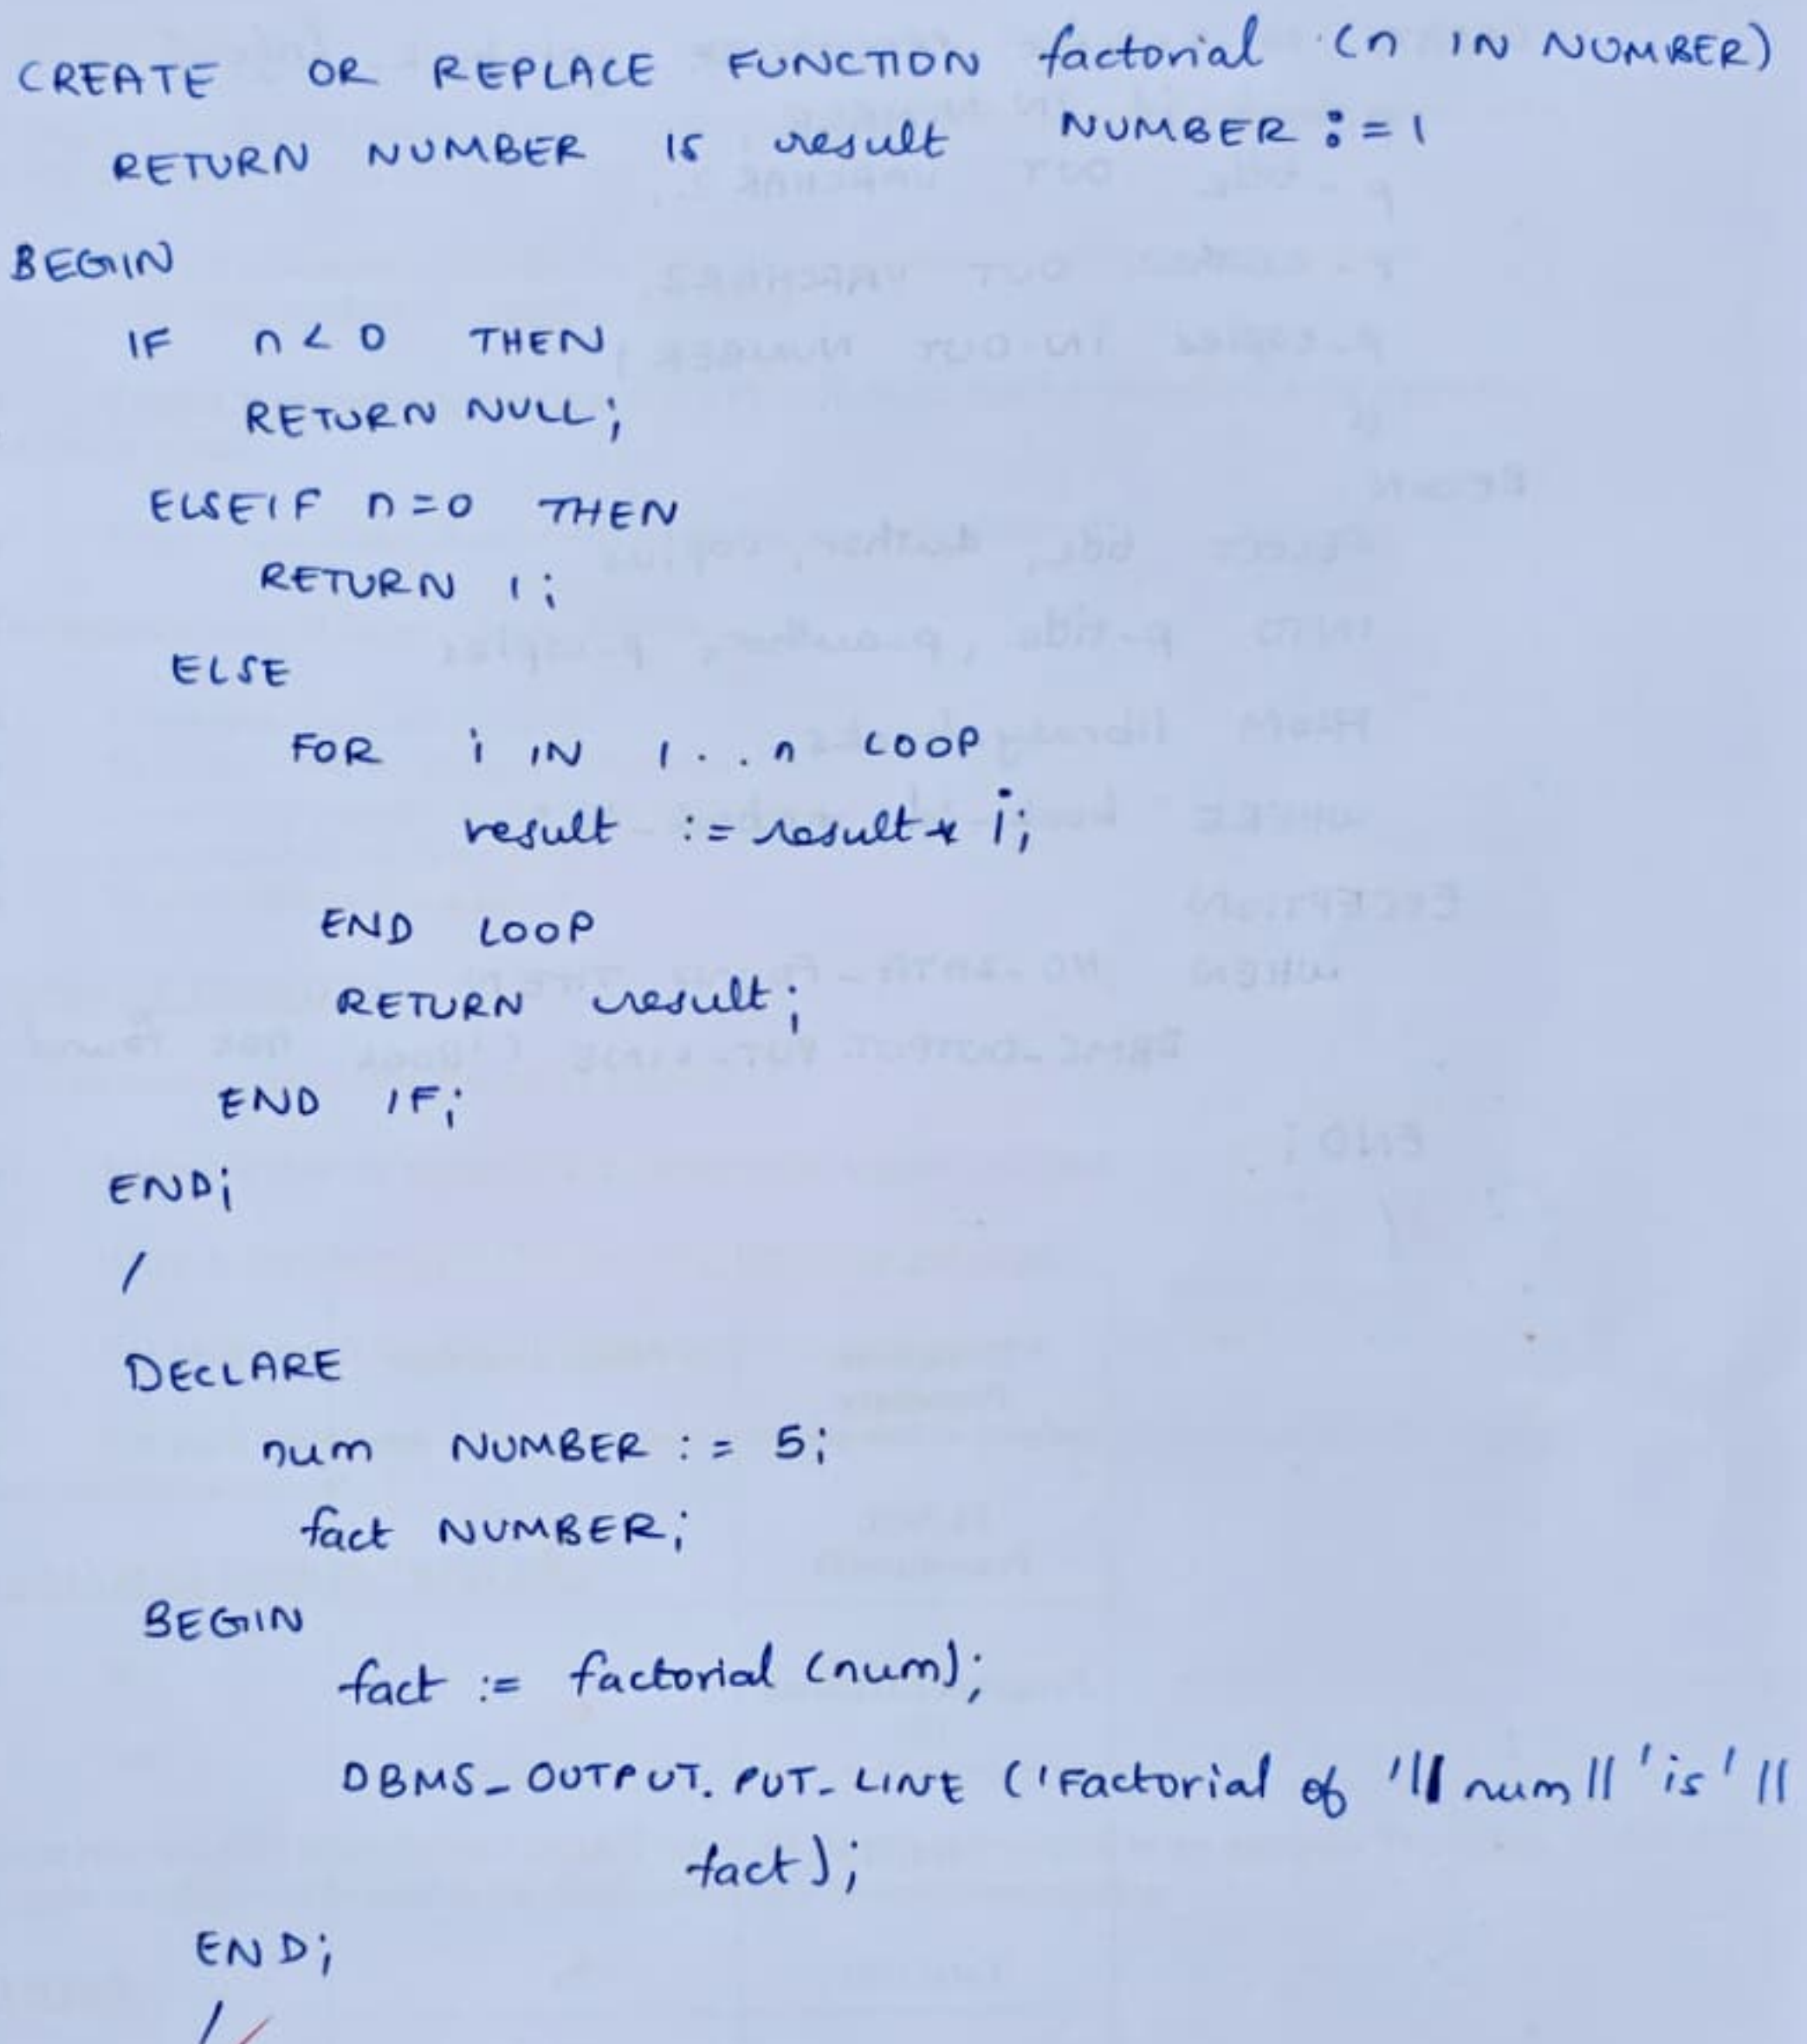 CREATE OR REPLACE FUNCTION factorial (n IN NUMBER)
RETURN NUMBER IS result NUMBER := 1
BEGIN
IF n < 0 THEN
RETURN NULL;
ELSEIF n = 0 THEN
RETURN 1;
ELSE
FOR i IN 1 . . n LOOP
result := result * i;
END LOOP
RETURN result;
END IF;
END;
/
DECLARE
num NUMBER := 5;
fact NUMBER;
BEGIN
fact := factorial (num);
DBMS_OUTPUT.PUT_LINE ('Factorial of '|| num || 'is' ||
fact);
END;
/